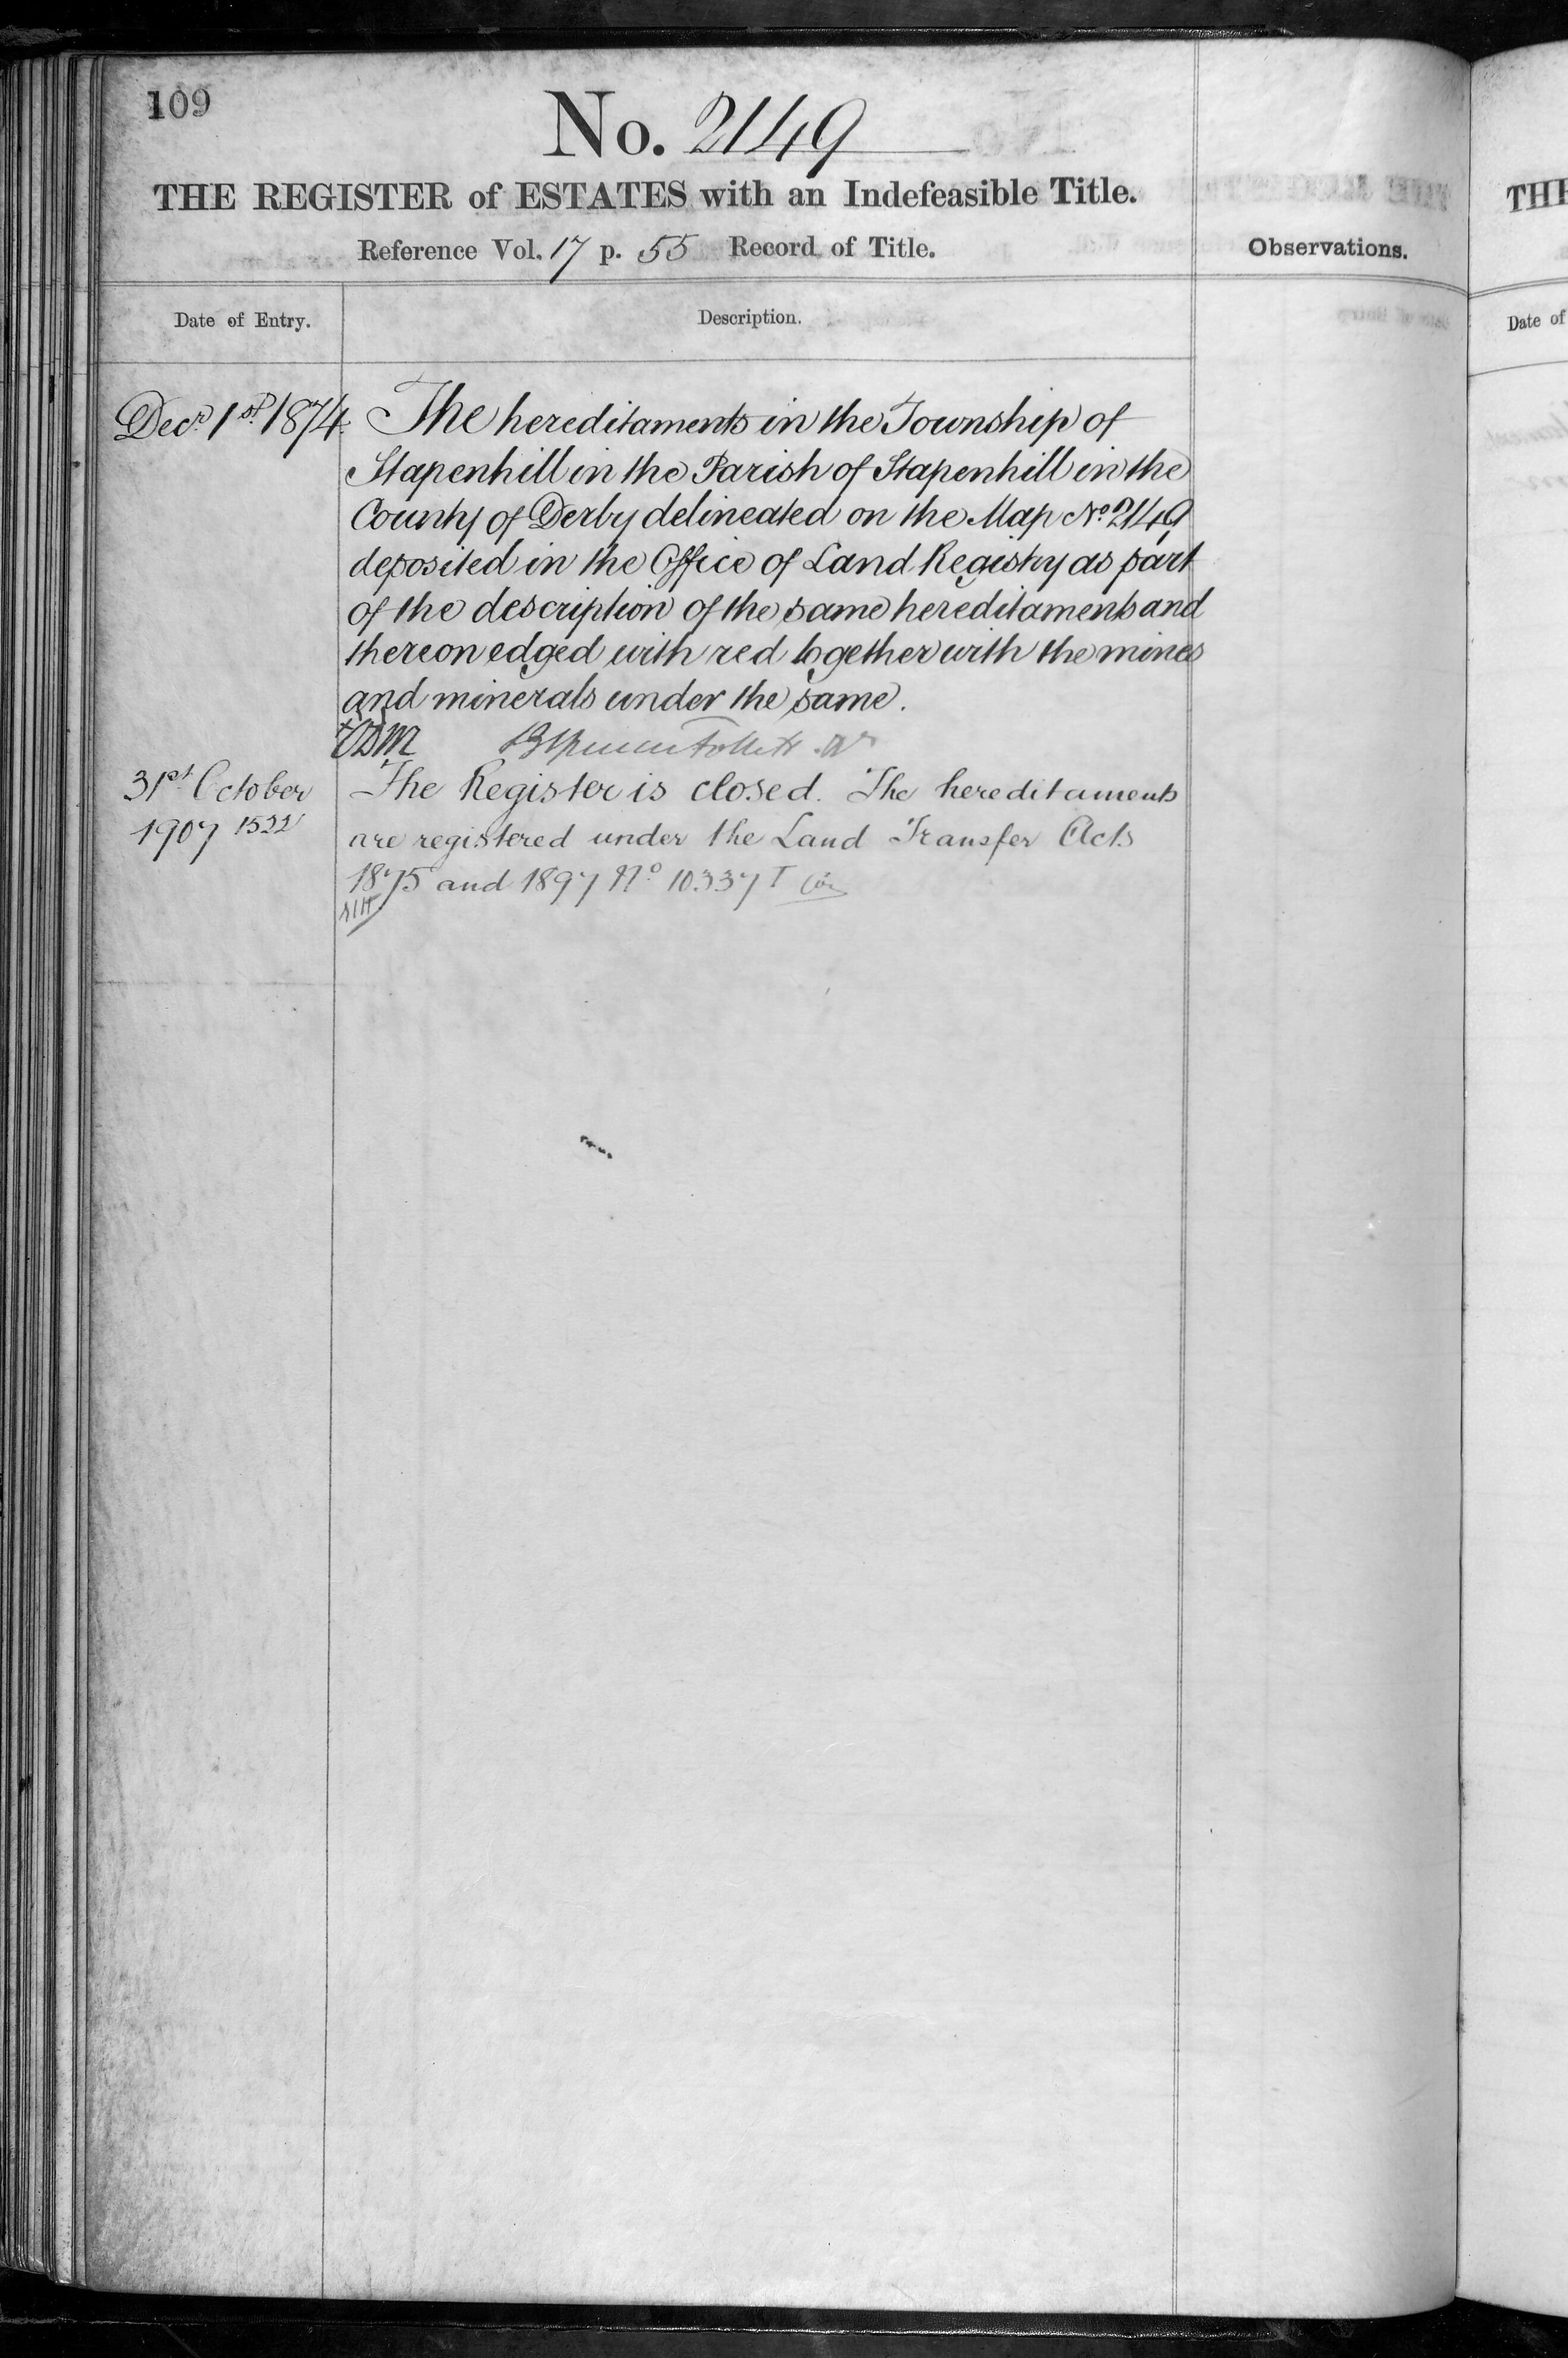 109
No. 2149
THE REGISTER of ESTATES with an Indefeasible Title.
Reference Vol. 17 p. 55 Record of Title.
Observations.
Date of Entry.
Description.
Decr 1st 1874. The hereditaments in the Township of
Stapenhill in the Parish of Stapenhill in the
County of Derby delineated on the Map No 2149
deposited in the Office of Land Registry as part
of the description of the same hereditaments and
thereon edged with red together with the mines
and minerals under the same.
31st October The Register is closed. The hereditaments
1907 1522 are registered under the Land Transfer Acts
1875 and 1897 No 10337
THE
Date of